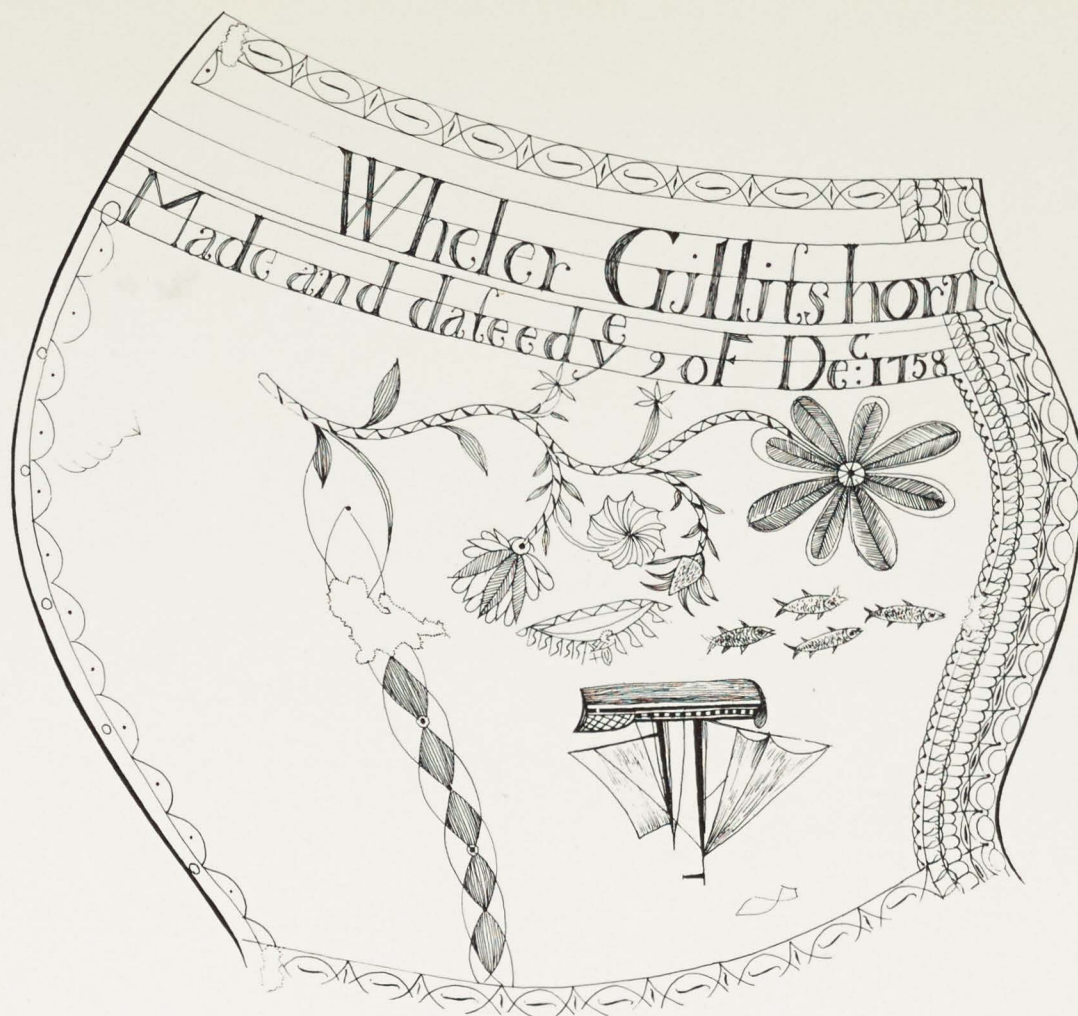 Wheler Gillits horn
Made and dateed yᵉ 9 of Decᶜ: 1758